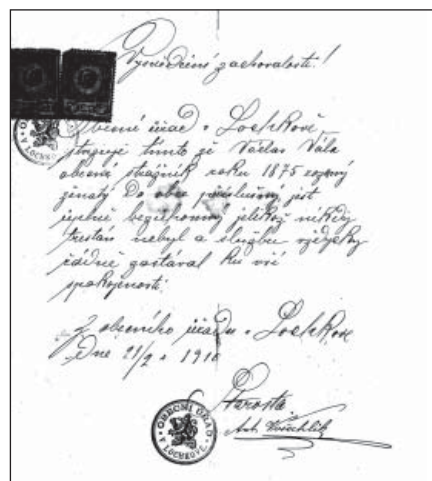 Vysvědčení zachovalosti!
Obecní úřad v Lochkově
stvrzuje tímto že Václav Vála
obecní strážník roku 1875 rozený
ženatý do obce příslušný jest
úplně bezúhonný jelikož nikdy
trestán nebyl a službu vždycky
řádně zastával ku vší
spokojenosti
Z obecního úřadu v Lochkově
Dne 21/2 1910
Starosta
Ant.
OBECNÍ ÚŘAD V LOCHKOVĚ